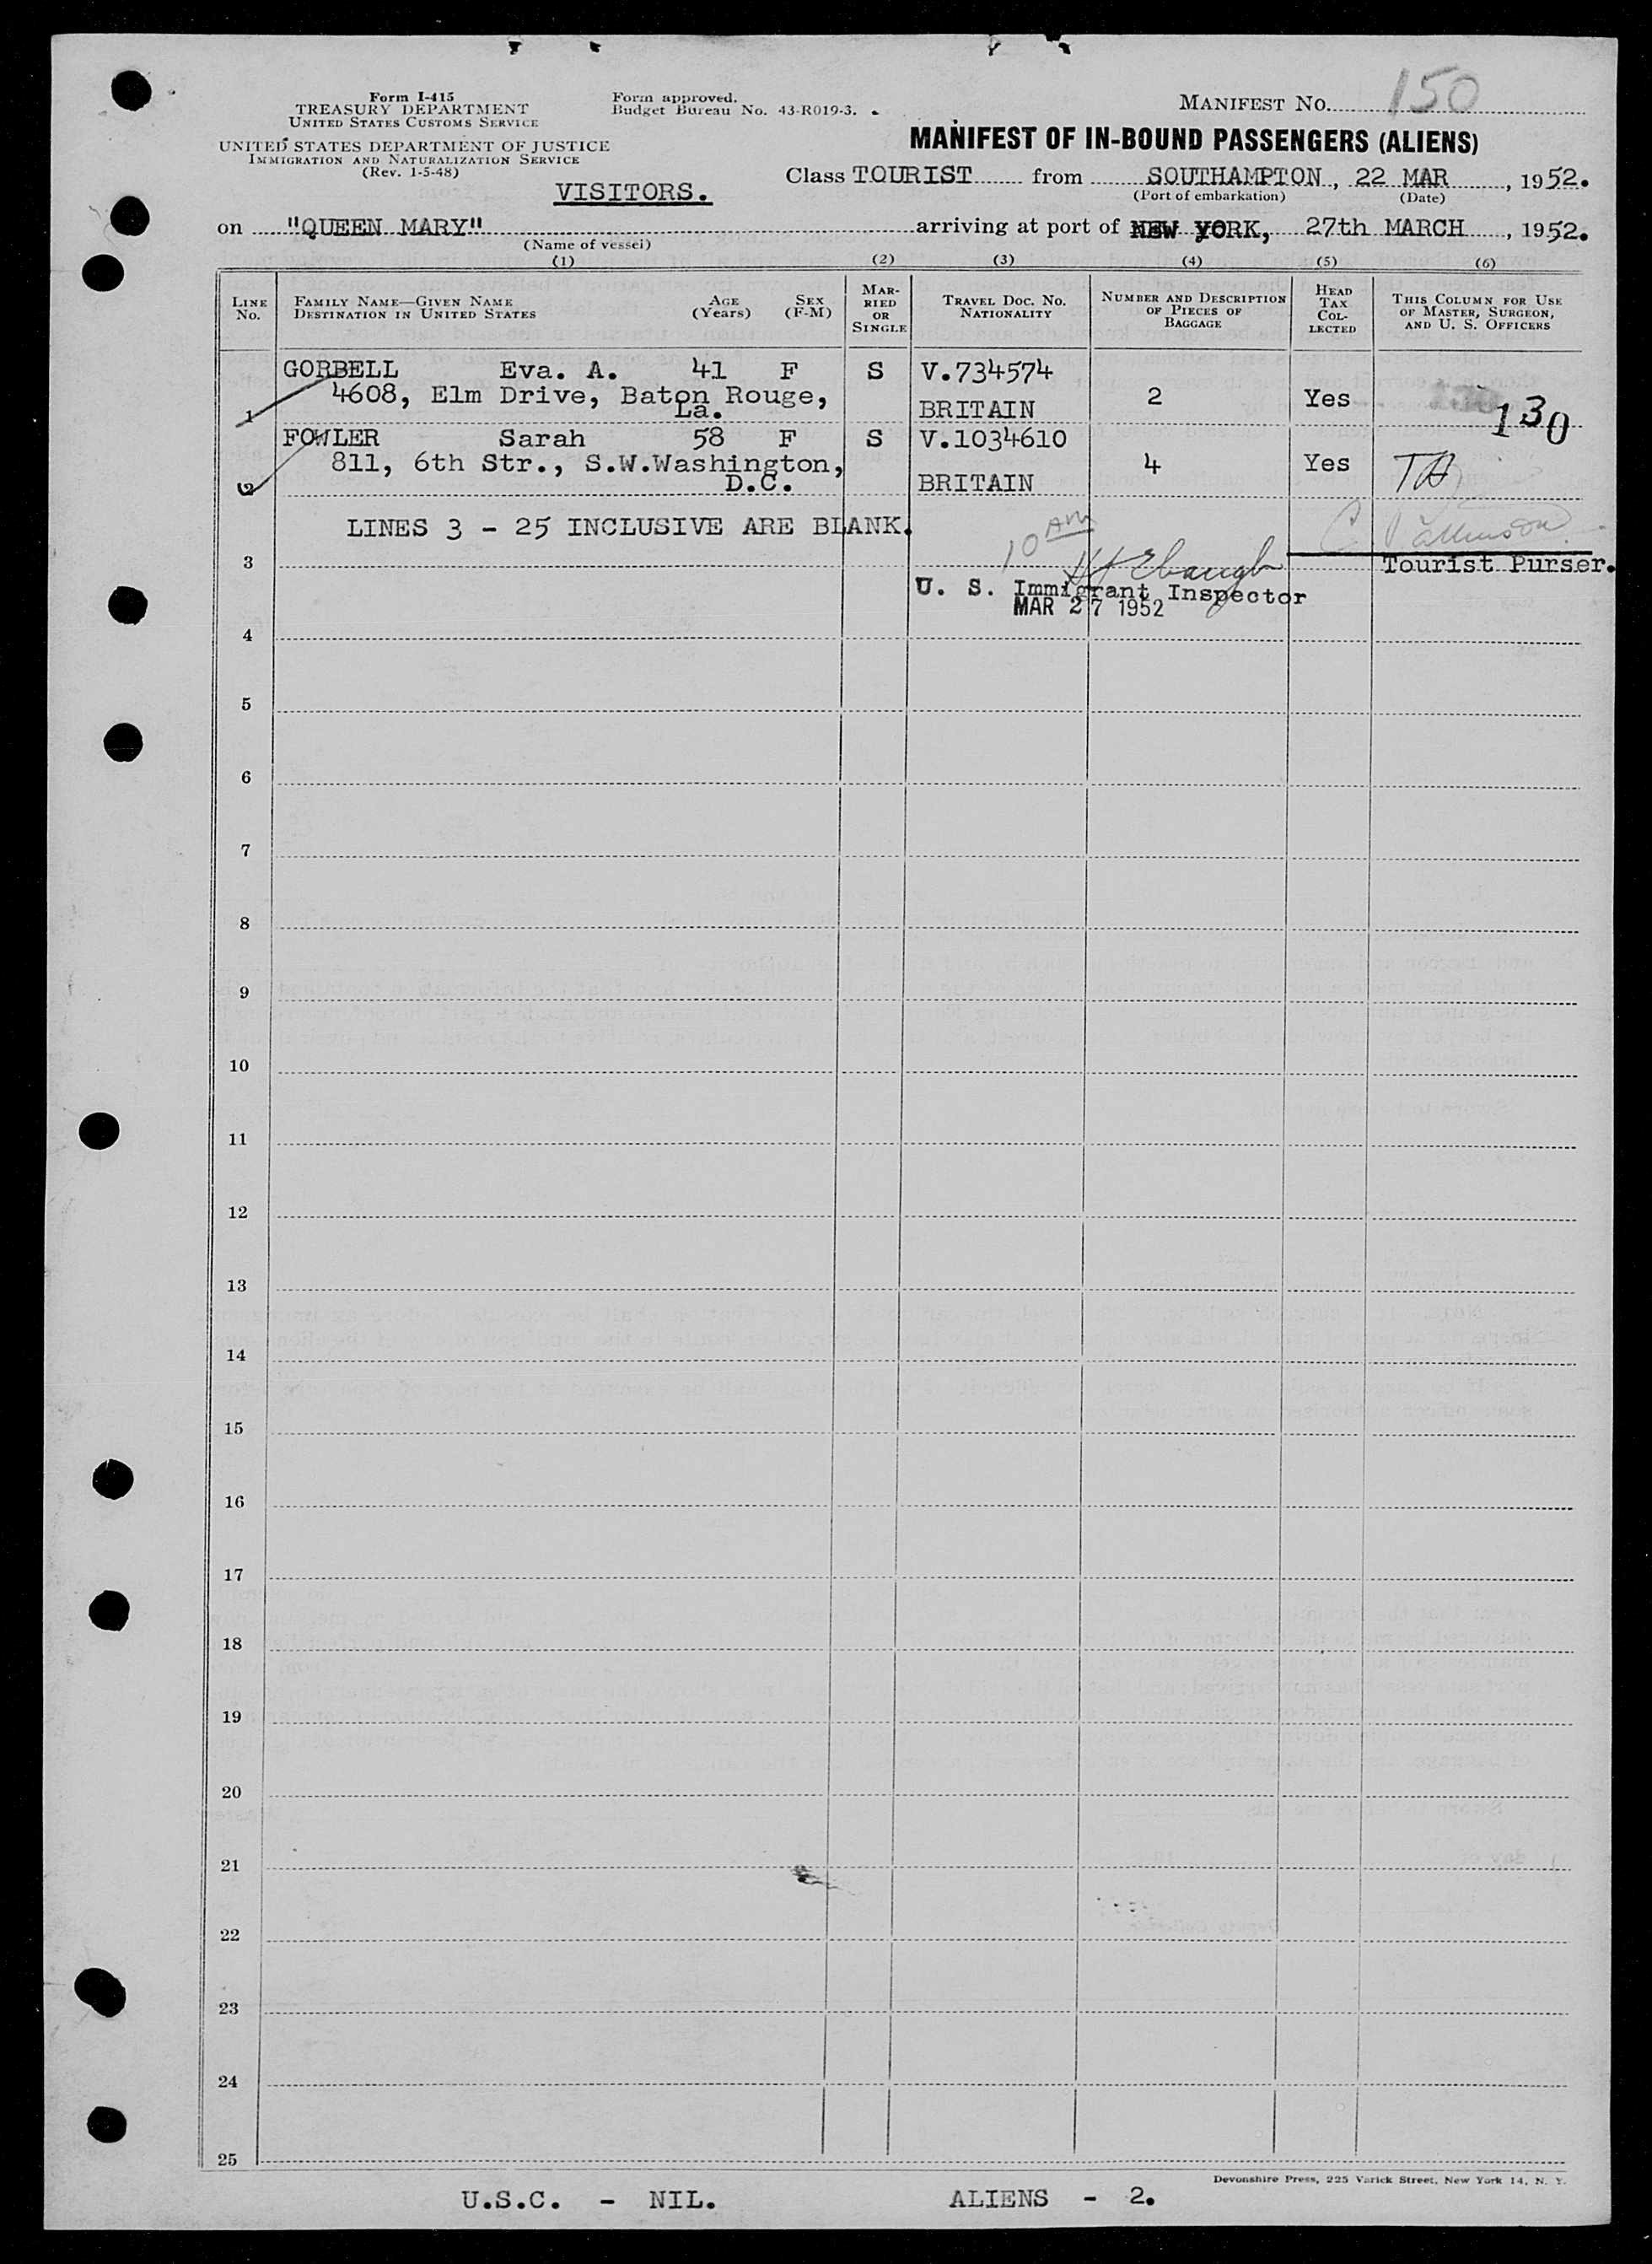 Form I-415
TREASURY DEPARTMENT
UNITED STATES CUSTOMS SERVICE
UNITED STATES DEPARTMENT OF JUSTICE
IMMIGRATION AND NATURALIZATION SERVICE
(Rev. 1-5-48)
Form approved.
Budget Bureau No. 43-R019-3.
MANIFEST No. 150
MANIFEST OF IN-BOUND PASSENGERS (ALIENS)
VISITORS.
Class TOURIST from SOUTHAMPTON, 22 MAR, 1952.
(Port of embarkation) (Date)
on "QUEEN MARY" arriving at port of NEW YORK, 27th MARCH, 1952.
(Name of vessel)
(1) (2) (3) (4) (5) (6)
LINE No.
FAMILY NAME—GIVEN NAME
DESTINATION IN UNITED STATES
AGE (Years)
SEX (F-M)
MARRIED OR SINGLE
TRAVEL DOC. NO.
NATIONALITY
NUMBER AND DESCRIPTION OF PIECES OF BAGGAGE
HEAD TAX COLLECTED
THIS COLUMN FOR USE OF MASTER, SURGEON, AND U. S. OFFICERS
GORBELL Eva. A. 41 F S V.734574
4608, Elm Drive, Baton Rouge, 2 Yes
1 La. BRITAIN 130
FOWLER Sarah 58 F S V.1034610
811, 6th Str., S.W.Washington, 4 Yes
2 D.C. BRITAIN
LINES 3 - 25 INCLUSIVE ARE BLANK.
10 AM
3 Tourist Purser.
U. S. Immigrant Inspector
MAR 27 1952
4
5
6
7
8
9
10
11
12
13
14
15
16
17
18
19
20
21
22
23
24
25
Devonshire Press, 225 Varick Street, New York 14, N. Y.
U.S.C. - NIL. ALIENS - 2.